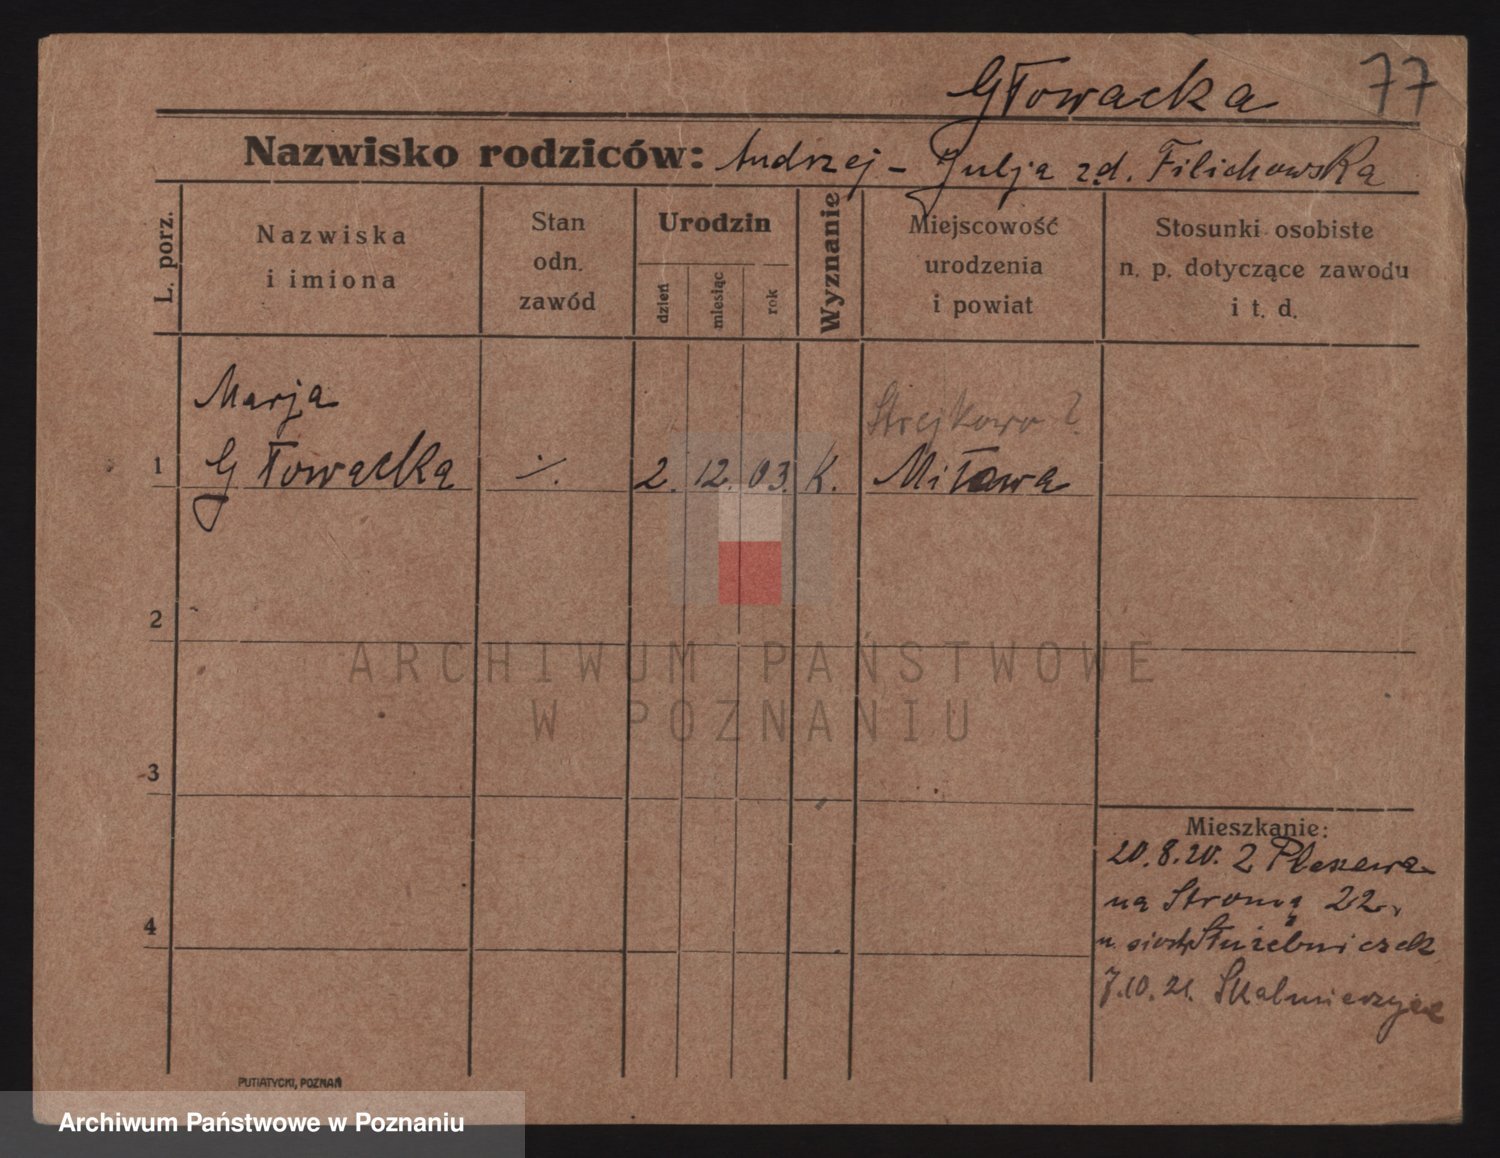 Głowacka 77
Nazwisko rodziców: Andrzej - Julja zd. Filichowska
L. porz.
Nazwiska
i imiona
Stan
odn.
zawód
Urodzin
dzień
miesiąc
rok
Wyznanie
Miejscowość
urodzenia
i powiat
Stosunki osobiste
n. p. dotyczące zawodu
i t. d.
Marja
Strejkowo ?
1 Głowacka ·/. 2. 12. 03. K. Miława
2
ARCHIWUM PAŃSTWOWE
W POZNANIU
3
Mieszkanie:
20.8.20. z Pleszewa
na Stromą 22.
u. siostr Służebniczek
4
7.10.21. Skalmierzyce
PUTIATYCKI, POZNAŃ
Archiwum Państwowe w Poznaniu